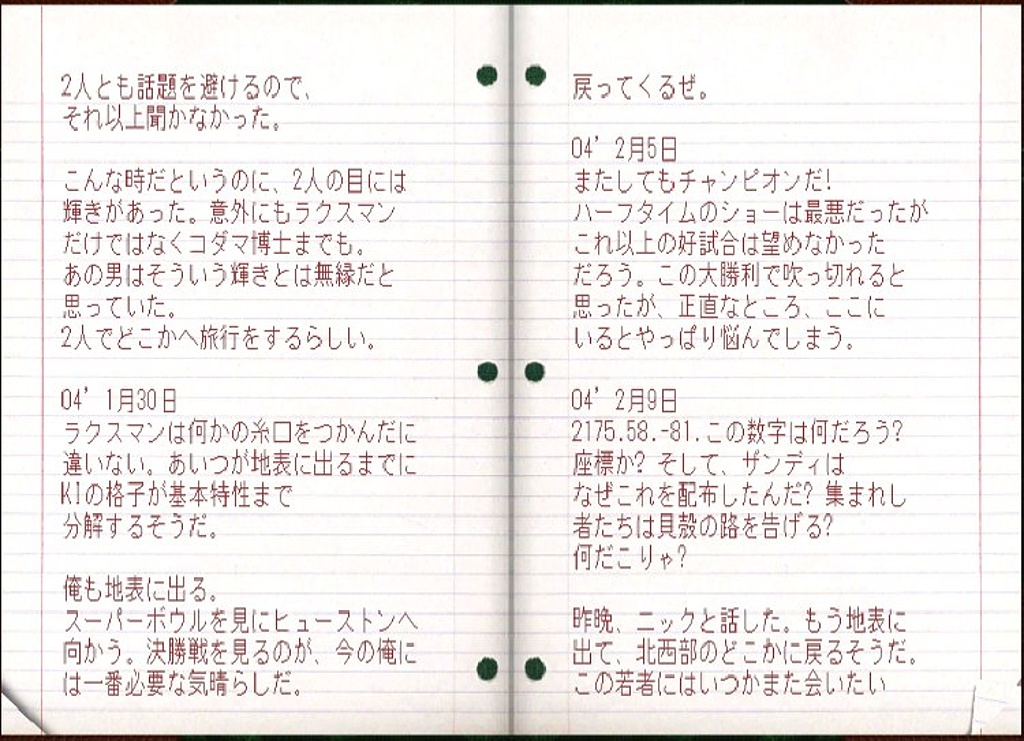 2人とも話題を避けるので、
それ以上聞かなかった。
こんな時だというのに、2人の目には
輝きがあった。意外にもラクスマン
だけではなくコダマ博士までも。
あの男はそういう輝きとは無縁だと
思っていた。
2人でどこかへ旅行をするらしい。
04' 1月30日
ラクスマンは何かの糸口をつかんだに
違いない。あいつが地表に出るまでに
KIの格子が基本特性まで
分解するそうだ。
俺も地表に出る。
スーパーボウルを見にヒューストンへ
向かう。決勝戦を見るのが、今の俺に
は一番必要な気晴らしだ。
戻ってくるぜ。
04' 2月5日
またしてもチャンピオンだ!
ハーフタイムのショーは最悪だったが
これ以上の好試合は望めなかった
だろう。この大勝利で吹っ切れると
思ったが、正直なところ、ここに
いるとやっぱり悩んでしまう。
04' 2月9日
2175.58.-81.この数字は何だろう?
座標か? そして、ザンディは
なぜこれを配布したんだ? 集まれし
者たちは貝殻の路を告げる?
何だこりゃ?
昨晩、ニックと話した。もう地表に
出て、北西部のどこかに戻るそうだ。
この若者にはいつかまた会いたい